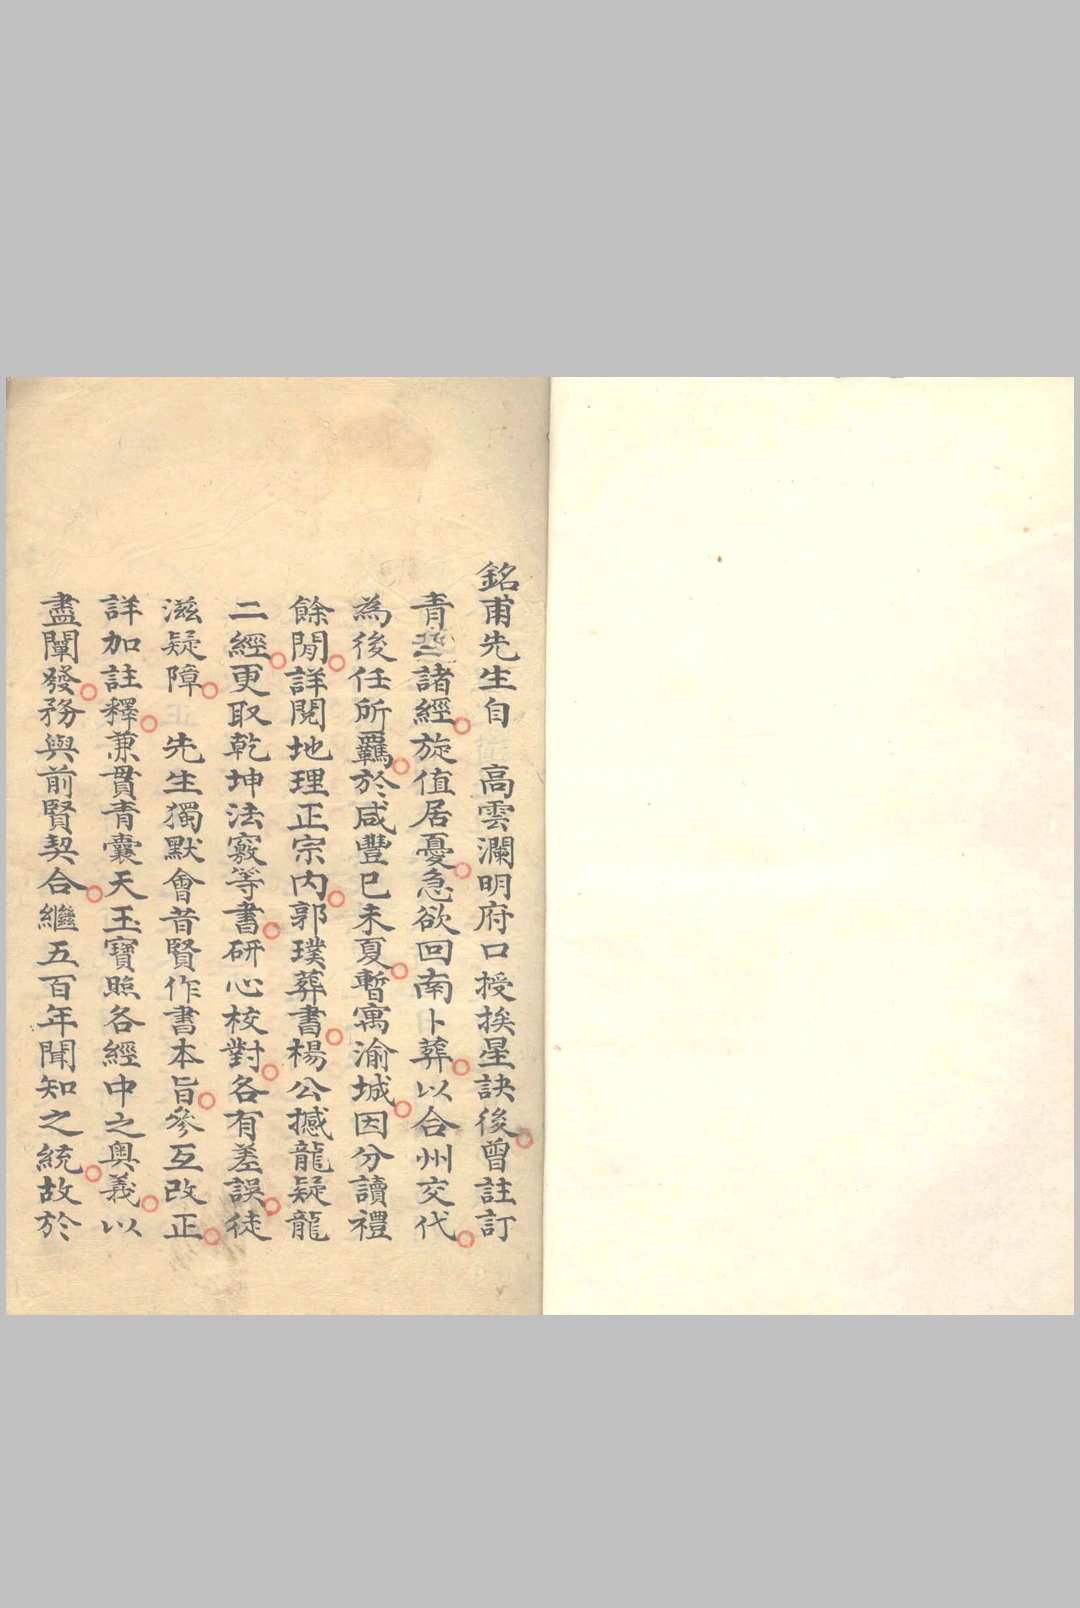 銘甫先生自　高雲瀾明府口授挨星訣後曾註訂
青諸經旋值居憂急欲回南卜葬以合州交代
為後任所羈於咸豐巳未夏暫寓渝城因分讀禮
餘閒詳閱地理正宗內郭璞葬書楊公撼龍疑龍
二經更取乾坤法竅等書研心校對各有差誤徒
滋疑障　先生獨默會昔賢作書本旨參互改正
詳加註釋兼貫青囊天玉寶照各經中之奧義以
盡闡發務與前賢契合繼五百年聞知之統故於